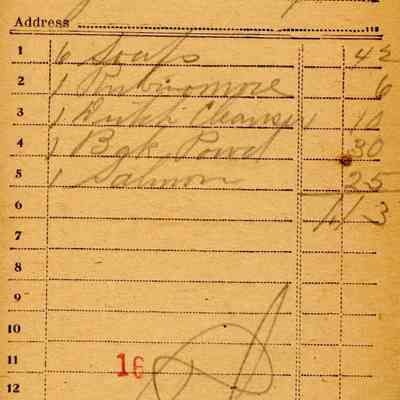 Address 11⁠8
1 6 Soaps 42
2 1 Rubnomore 6
3 1 Dutch Cleanser 10
4 1 Bak Powd 30
5 1 Salmon 25
6 1/13
7
8
9
10
11 16
12